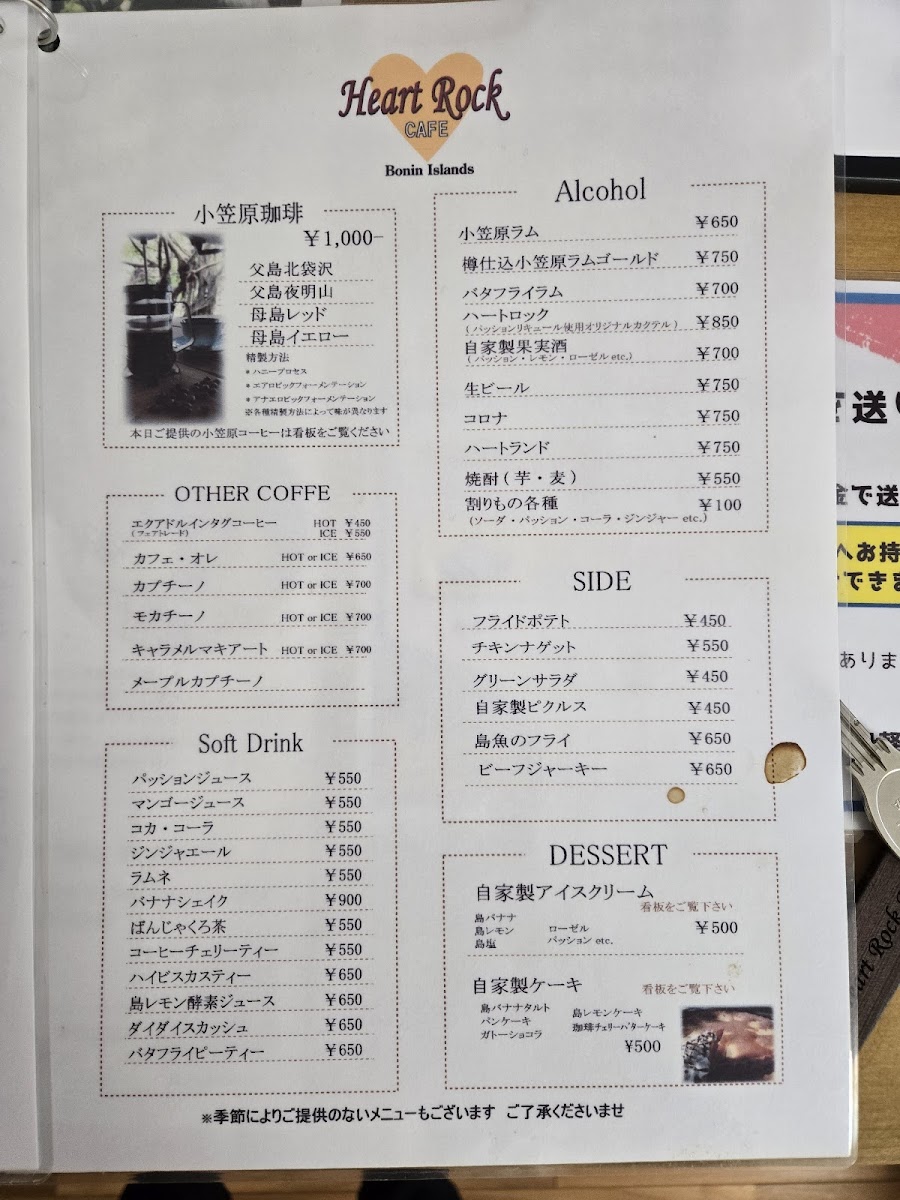 Heart Rock
CAFE
Bonin Islands
小笠原珈琲
¥1,000-
父島北袋沢
父島夜明山
母島レッド
母島イエロー
精製方法
* ハニープロセス
* エアロビックフォーメンテーション
* アナエロビックフォーメンテーション
※各種精製方法によって味が異なります
本日ご提供の小笠原コーヒーは看板をご覧ください
OTHER COFFE
エクアドルインタグコーヒー HOT ¥450
(フェアトレード) ICE ¥550
カフェ・オレ HOT or ICE ¥650
カプチーノ HOT or ICE ¥700
モカチーノ HOT or ICE ¥700
キャラメルマキアート HOT or ICE ¥700
メープルカプチーノ
Soft Drink
パッションジュース ¥550
マンゴージュース ¥550
コカ・コーラ ¥550
ジンジャエール ¥550
ラムネ ¥550
バナナシェイク ¥900
ばんじゃくろ茶 ¥550
コーヒーチェリーティー ¥550
ハイビスカスティー ¥650
島レモン酵素ジュース ¥650
ダイダイスカッシュ ¥650
バタフライピーティー ¥650
Alcohol
小笠原ラム ¥650
樽仕込小笠原ラムゴールド ¥750
バタフライラム ¥700
ハートロック ¥850
(パッションリキュール使用オリジナルカクテル)
自家製果実酒 ¥700
(パッション・レモン・ローゼル etc.)
生ビール ¥750
コロナ ¥750
ハートランド ¥750
焼酎 ( 芋・麦 ) ¥550
割りもの各種 ¥100
(ソーダ・パッション・コーラ・ジンジャー etc.)
SIDE
フライドポテト ¥450
チキンナゲット ¥550
グリーンサラダ ¥450
自家製ピクルス ¥450
島魚のフライ ¥650
ビーフジャーキー ¥650
DESSERT
自家製アイスクリーム
看板をご覧下さい
島バナナ
島レモン ローゼル ¥500
島塩 パッション etc.
自家製ケーキ 看板をご覧下さい
島バナナタルト 島レモンケーキ
パンケーキ 珈琲チェリーバターケーキ
ガトーショコラ
¥500
※季節によりご提供のないメニューもございます ご了承くださいませ
送り
で送
へお持
できま
ありま